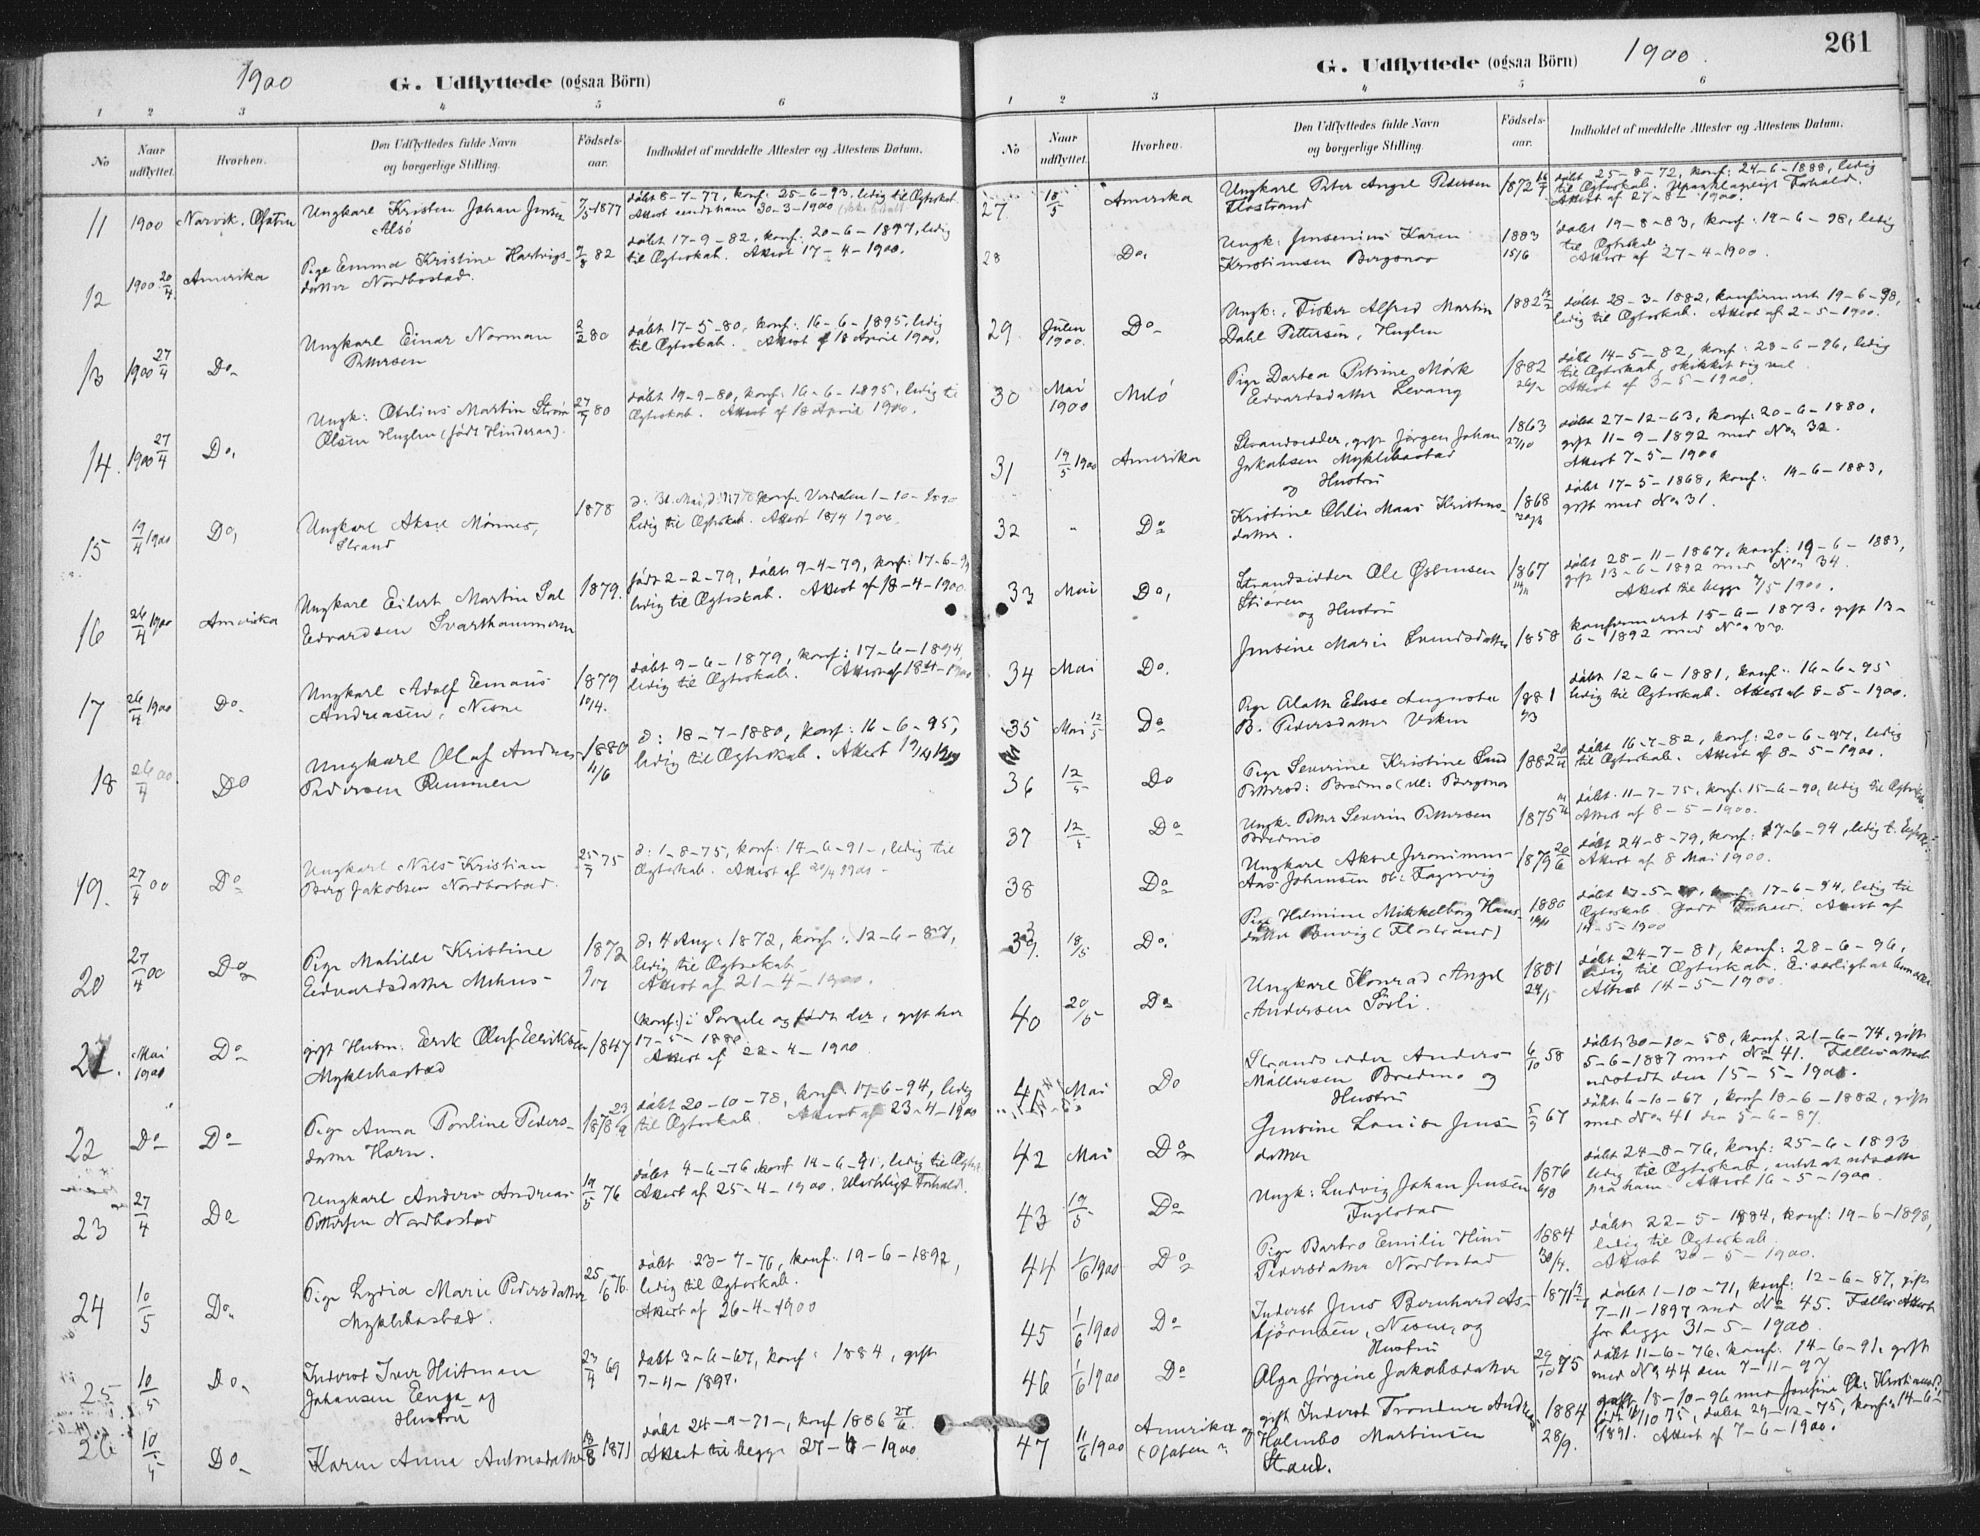 1900
G. Udflyttede (ogsaa Börn)
1 2 3 4 5 6
No
Naar udflyttet.
Hvorhen.
Den Udflyttedes fulde Navn
og borgerlige Stilling.
Födsels-
aar.
Indholdet af meddelte Attester og Attestens Datum.
11 1900 Narvik. Ofoten Ungkarl Kristen Johan Jensen 7/5-1877 døbt 8-7-77, konf: 25-6-93, ledig til Ægteskab.
Alsö Attest 30-3-1900
12 1900 20/4 Amerika Pige Emma Kristine Hartvigs- 82 døbt 17-9-82, konf: 20-6-1897, ledig
datter Nordbostad. til Ægteskab. Attest 17-4-1900.
13 1900 27/4 Do Ungkarl Einar Norman 2/2 80 døbt 17-5-80, konf: 16-6-1895, ledig
Pettersen til Ægteskab. Attest af 18 April 1900.
14. 1900 27/4 Do, Ungk: Othlius Martin Strøm 27/7 80 døbt 19-9-80, konf: 16-6-1895, ledig til
Olsen Huglen (født Hinderaa). Ægteskab. Attest af 18 April 1900.
15 19/4 1900 Do, Ungkarl Aksel Mønnes, 1878 konf: Verdalen 1-10-1890
Strand Ledig til Ægteskab. Attest 18/4 1900.
16 26/4 1900 Amerika Ungkarl Eilert Martin Sal 1879. født 2-2-79, døbt 9-4-79, konf: 17-6-94
Edvardsen Svarthammeren ledig til Ægteskab. Attest af 18-4-1900.
17 26/4 1900 Do Ungkarl Adolf Emaus 1879 døbt 9-6-1879, konf: 17-6-1894,
Andreasen, Nesne 10/4. ledig til Ægteskab. Attest af 18-4-1900
18 26/4 00. Do Ungkarl Olaf Andreas 1880 d: 18-7-1880, konf: 16-6-95,
Pedersen Remmen 11/6 ledig til Ægteskab. Attest 19/4 1900
19. 27/4 00 Do Ungkarl Nils Kristian 25/7 75 d: 1-8-75, konf: 14-6-91-, ledig til
Berg Jakobsen Nordbostad. Ægteskab. Attest af 20/4 1900-
20 27/4 00 Do Pige Matilde Kristine 1872 d: 4 Aug: 1872, konf: 12-6-87,
Edvardsdatter Mehus- ledig til Ægteskab
Attest af 21-4-1900.
21. Mai 1900 Do gift Husm: Erik Oluf Eeriksen 1847 (konf:) i Sorsele og født der, gift her
Myklebostad 17-5-1880
Attest af 22-4-1900
22 Do Do Pige Anna Pouline Peders- 1878 23/9 døbt 20-10-78, konf. 17-6-94, ledig
datter Horn. til Ægteskab. Attest af 23-4-1900
23 27/4 Do Ungkarl Anders Andreas 19/5 76 døbt 4-6-76, konf 14-6-91, ledig til Ægtesk.
Pettersen Nordbostad Attest af 25-4-1900. Forhold.
24 10/5 Do Pige Lydia Marie Pedersdatter 25/6 76. døbt 23-7-76, konf: 19-6-1892,
Myklebostad. ledig til Ægteskab.
Attest af 26-4-1900
25 10/5 Do Inderst Iver Hitman 23/4 69 døbt 3-6-67, konf: 1884, gift
Johansen Enga og 7-11-1897.
Hustru
26 10/5 Do Karen Anna Antonsdatter 13/8 1871 døbt 24-9-71-, konf 1886 27/6.
Attest til begge 27-4-1900
261
G. Udflyttede (ogsaa Börn) 1900.
1 2 3 4 5 6
No
Naar udflyttet.
Hvorhen.
Den Udflyttedes fulde Navn
og borgerlige Stilling.
Födsels-
aar.
Indholdet af meddelte Attester og Attestens Datum.
27 18/5 Amerika Ungkarl Peter Angel Pedersen 1872 døbt 25-8-72, konf: 24-6-1888, ledig
Flostrand til Ægteskab. Forhold.
Attest af 27-8-1900.
28 Do, Ungk: Jensenius Karen 1883 døbt 19-8-83, konf: 19-6-98, ledig
Kristiansen Bergsnov 15/6 til Ægteskab
Attest af 27-4-1900.
29 Julen 1900. Do Ungk:, Fisker Alfred Martin 1882 døbt 28-3-1882, konfirmeret 19-6-98,
Dahl Pettersen, Huglen ledig til Ægteskab. Attest af 2-5-1900.
30 Mai 1900 Melö Pige Dortea Petrine Mørk 1882 døbt 14-5-82, konf: 28-6-96, ledig
Edvardsdatter Levang til Ægteskab, skikket sig vel
Attest af 3-5-1900.
31 19/5 1900 Amerika Strandsidder, gift Jørgen Johan 1863 døbt 27-12-63, konf: 20-6-1880,
Jakobsen Myklebostad 27/10 gift 11-9-1892 med No 32.
og Hustru Attest 7-5-1900
32 " Do Kristine Othlia Maas Kristens- 1868 døbt 17-5-1868, konf: 14-6-1883,
datter. gift med No 31.
33 Mai Do, Strandsidder Ole Østensen 1867 døbt 28-11-1867, konf: 19-6-1883,
Stiøren gift 13-6-1892 med No 34.
og Hustru Attest til begge 7/5 1900.
34 Mai Do. Jensine Marie Svendsdatter 1858 konfirmeret 15-6-1873, gift 13-
6-1892 med No 33.
35 Mai 12/5 Do Pige Alette Elase Augusta 1881 døbt 12-6-1881, konf: 16-6-95
B. Pedersdatter Viken 4/3 ledig til Ægteskab. Attest af 8-5-1900.
36 12/5 Do Pige Severine Kristine Sand 1882 døbt 16-7-82, konf: 20-6-97, ledig
Petersd: Bredmo Bergsnov til Ægteskab. Attest af 8-5-1900.
37 12/5 Do Ungk. Petter Severin Pettersen 1875 døbt 11-7-75, konf: 15-6-90, ledig til Ægteskab
Bredmo Attest af 8-5-1900.
38 Do Ungkarl Aksel Jeronimus 1879 20/6 døbt 24-8-79, konf: 17-6-94, ledig t. Ægtesk:
Aas Johansen Fagervig Attest af 8 Mai 1900.
39. 18/5 Do. Pige Helmine Mikkelborg Hans- 1880 konf 17-6-94, ledig til
datter (Flostrand) Ægteskab. Godt Forhold. Attest af
14-5-1900
40 20/5 Do Ungkarl Konrad Angel 1881 døbt 24-7-81, konf: 28-6-96,
Andersen Sørli. 24/5 ledig til Ægteskab. Ei særligt at bemærke
Attest 14-5-1900.
41 Mai Do Strandsidder Anders 6/10 58 døbt 30-10-58, konf: 21-6-74, gift
Møllersen Bredmo og 5-6-1887 med No 41. Fælles attest
Hustru udstedt den 15-5-1900.
42 Mai Do Jensine Louise Jens- 5/9 67 døbt 6-10-67, konf 18-6-1882, gift
datter med No 41 den 5-6-87.
43 19/5 Do Ungk: Ludvig Johan Jensen 1876 døbt 24-8-76, konf: 25-6-1893
Fuglstad 6/8 ledig til Ægteskab, intet at udsætte
paa ham. Attest 16-5-1900.
44 1/6 1900 Do Pige Barbro Emilie Hins 1884 døbt 22-5-1884, konf: 19-6-1898,
Pedersdatter Nordbostad 30/4. ledig til Ægteskab.
Attest 30-5-1900.
45 1/6 1900 Do Inderst Jens Bernhard As- 1871 døbt 1-10-71, konf: 12-6-87, gift
bjørnsen, Nesne, og 7-11-1897 med No 45. Fælles Attest
Hustru for begge 31-5-1900
46 1/6 1900 Do Olga Jørgine Jakobsdatter 29/10 75 døbt 11-6-76, konf: 14-6-91, gift
med No 44 den 7-11-97
47 11/6 1900 Amerika (Ofoten gift Inderst Trondur Andreas 1884 gift 18-10-96 med Josefine Kristiansd.
Holmbo Martinsen 28/9. født 75, døbt 29-12-75, konf: 14-6-
Strand. 1891. Attest af 7-6-1900.